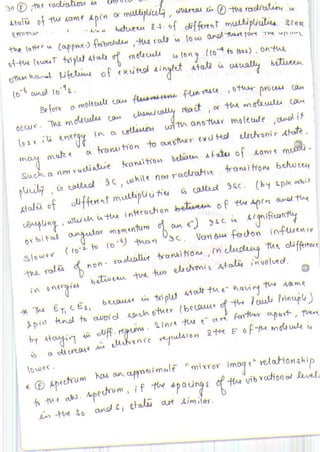 In Ⓕ, the radiation is emitted
states of the same spin or multiplicity, whereas in Ⓟ the radiation is
between 2 s. of different multiplicities. Since
the latter is (approx.) forbidden, the rate is low and therefore the
of the lowest triplet state of molecule is long (10⁻⁴ to 10s). On the
other hand lifetime of excited singlet state is usually between
10⁻⁶ and 10⁻⁹s.
Before a molecule can fluoresce, other process can
occur. The molecule can chemically react, or the molecule can
lose its energy in a collision with another molecule, and it
may make a transition to another excited electronic state.
Such a non radiative transition between states of same multi-
plicity, is called IC, while non radiative transitions between
states of different multiplicities is called ISC. (by spin orbit
coupling, which is the interaction between of the spin and the
orbital angular momentum of an e⁻) ISC is significantly
slower (10⁻² to 10⁻⁶) than IC. Various factors influence
the rates of non-radiative transitions, including the difference
in energies between the two electronic states involved.
* The E_T₁ < E_S₁ because in triplet state the e⁻ having the same
spin tend to avoid each other (because of the Pauli Principle)
by staying in diff. regions. Since the e⁻ are farther apart, there
is a decrease in electronic repulsion & the E of the molecule is
lower.
* Ⓕ spectrum has an approximate "mirror image" relationship
to the abs. spectrum, if the spacings of the vibrational levels
in the S₀ and S₁ states are similar.